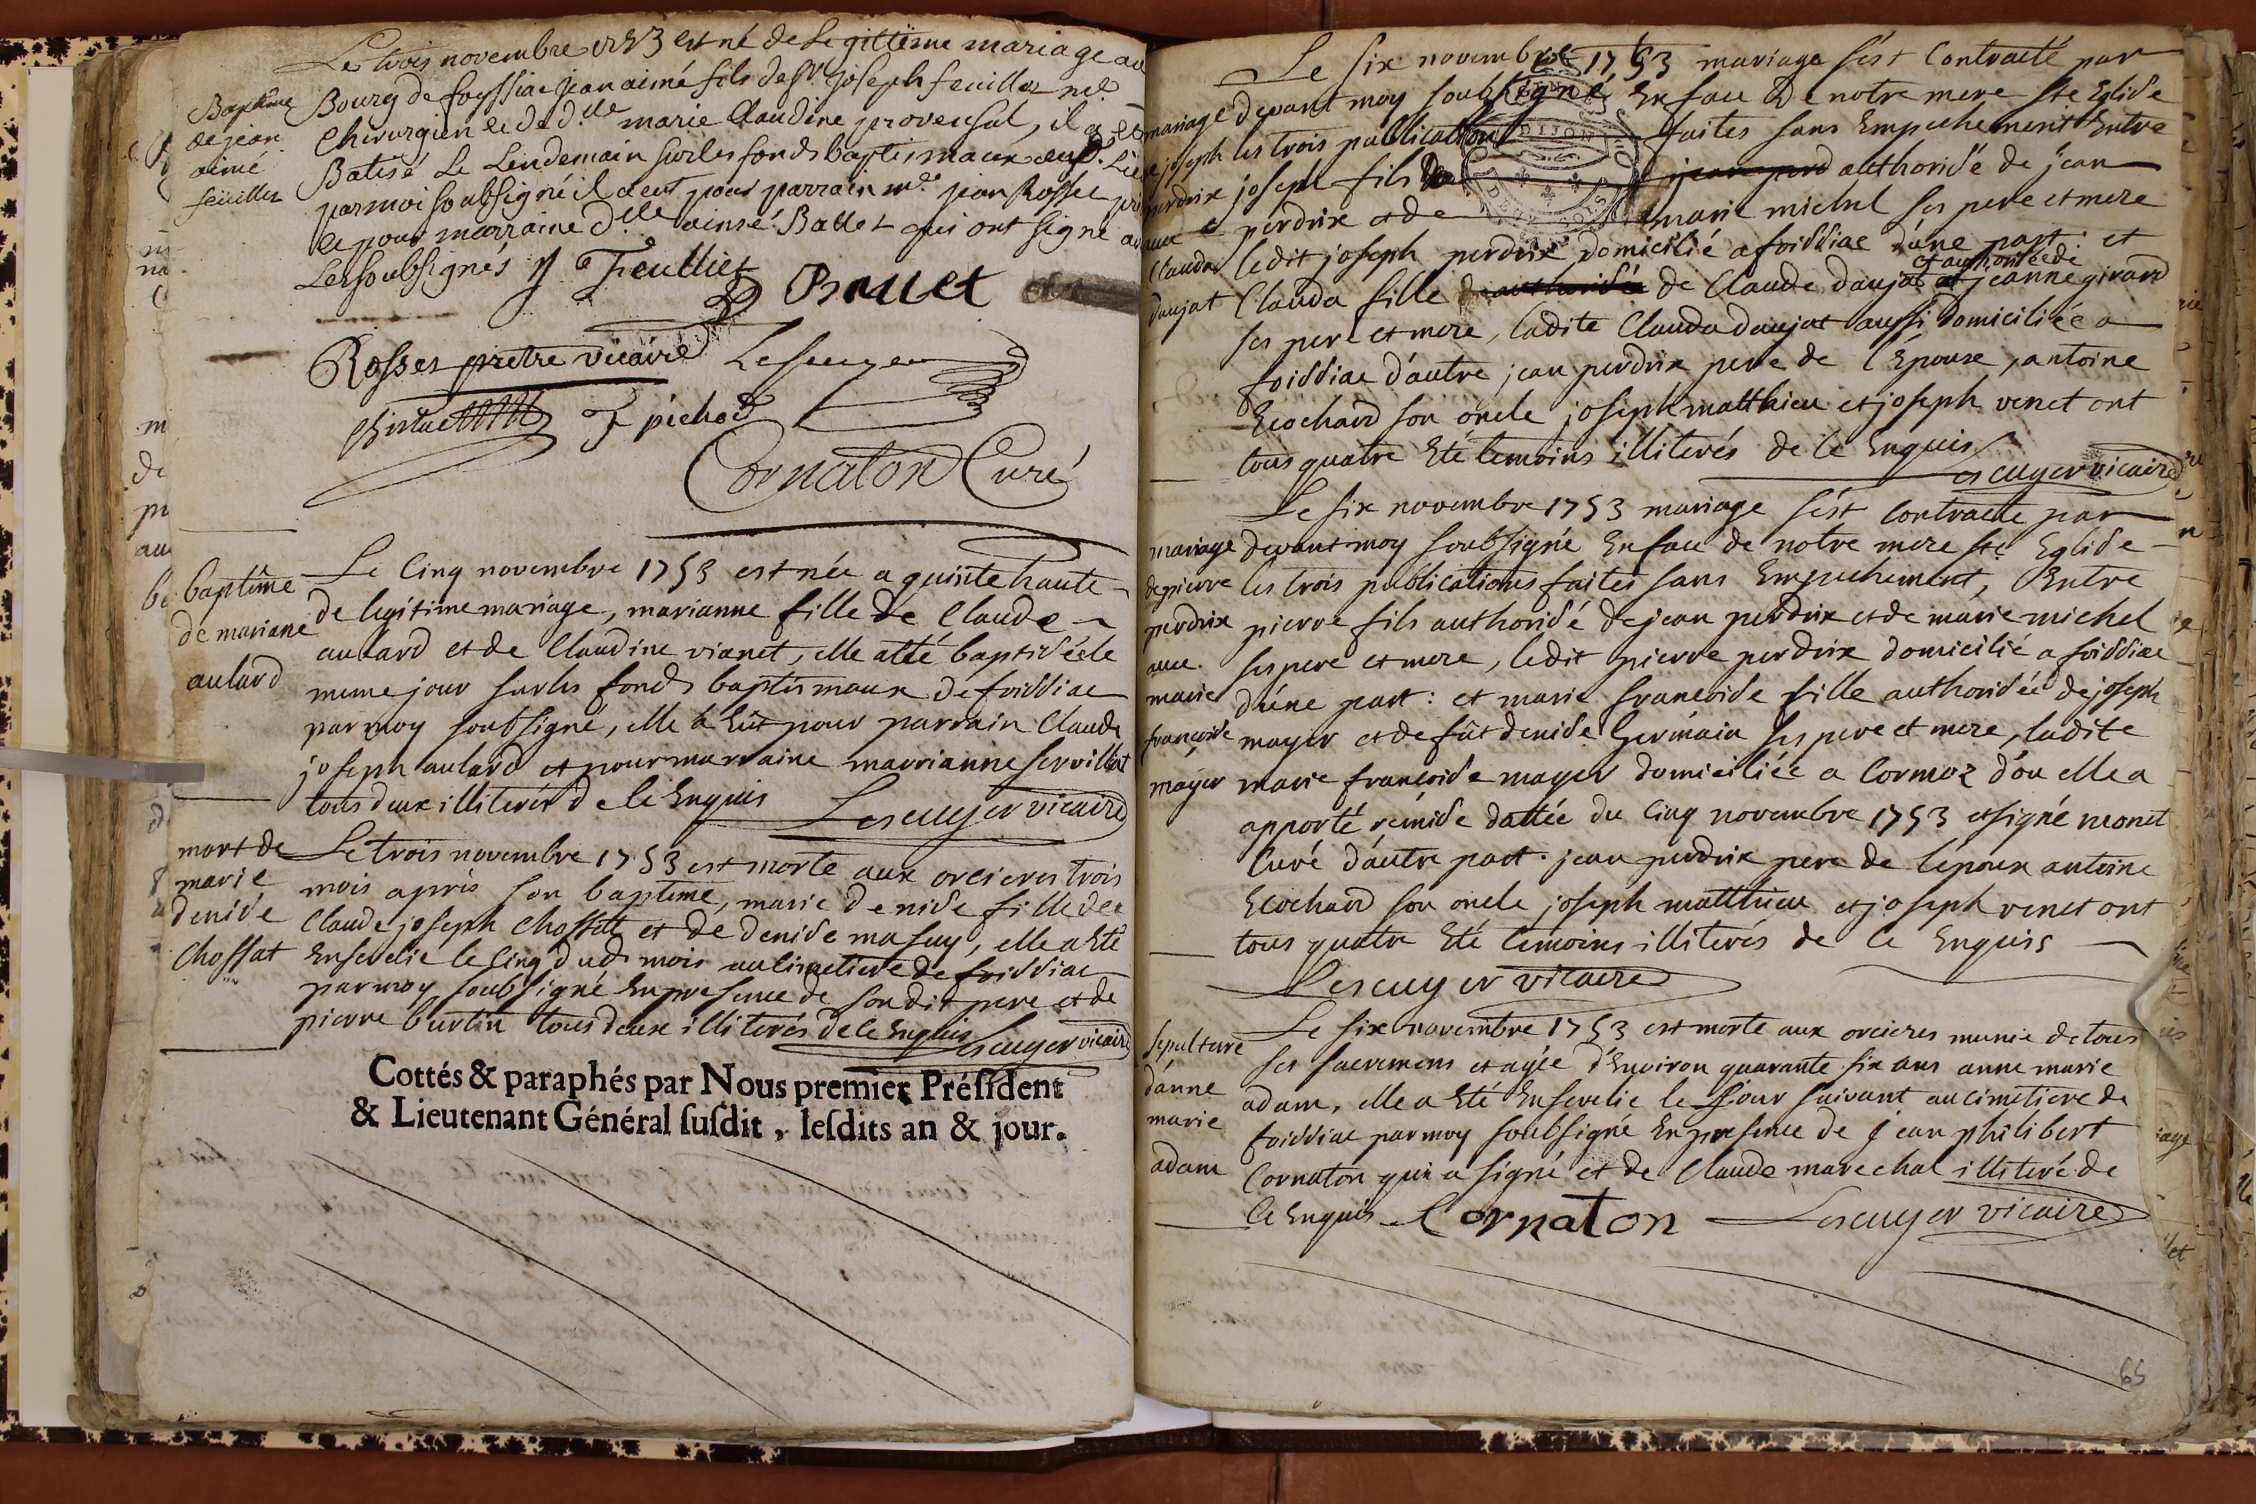 Le trois novembre 1753 est né de Legittime mariage au
Baptême
de jean
aimé
feuillet
Bourg de foyssiac jean aimé fils de Sr. joseph feuillet me.
Chirurgien et de d.lle marie Claudine provensal, il a
Batisé Le Lendemain sur les fonds baptismaux
par moi soubsigné il a eut pour parrain jean Rosset
et pour marraine d.lle Ballet qui ont signé
Les soubsignés J Feulliet
Ballet
Rosset pretre vicaire Lescuyer
pichod
Cornaton Curé
baptême
de mariane
aulard
Le Cinq novembre 1753 est née a quinte haute
de legitime mariage, marianne fille de Claude
aulard et de Claudine vianet, elle a été baptisée le
meme jour sur les fonds baptismaux de foissiac
par moy soubsigné, elle a Eut pour parrain Claude
joseph aulard et pour marraine marrianne servillat
tous deux illiterés de Ce Enquis Lescuyer vicaire
mort de
marie
denise
Chossat
Le trois novembre 1753 est morte aux orcieres trois
mois après son bapteme, marie denise fille de
Claude joseph Chossat et de denise mafuy, elle a Eté
Ensevelie le Cinq dud. mois au Cimetiere de foissiac
par moy soubsigné En presence de son dit pere et de
pierre burtin tous deux illiterés de Ce Enquis Lescuyer vicaire
Cottés & paraphés par Nous premier Préſident
& Lieutenant Général ſuſdit, leſdits an & jour.
Le six novembre 1753 mariage s'est Contracté par
mariage
joseph
perdrix
avec
Clauda
daujat
devant moy soubsigné En face De notre mere ste Eglise
les trois publications faites sans Empechement Entre
joseph fils de authorisé de jean
perdrix et de marie michel ses pere et mere
ledit joseph perdrix domicilié a foissiac d'une part: et
et authorisée de
Clauda fille de Claude daujat et jeanne girard
ses pere et mere, ladite Clauda daujat aussi domiciliée a
foissiac d'autre jean perdrix pere de l'Epoux, antoine
Ecochard son oncle joseph matthieu et joseph venet ont
tous quatre Eté temoins illiterés de Ce Enquis
Lescuyer vicaire
Le six novembre 1753 mariage s'est Contracté par
mariage
de pierre
perdrix
avec
marie
françoise
mayer
devant moy soubsigné En face de notre mere ste Eglise
les trois publications faites sans Empechement, Entre
pierre fils authorisé de jean perdrix et de marie michel
ses pere et mere, ledit pierre perdrix domicilié a foissiac
d'une part: et marie francoise fille authorisée de joseph
mayer et de fût denise Germain ses pere et mere, ladite
marie françoise mayer domiciliée a Cormoz d'ou elle a
apporté remise dattée du Cinq novembre 1753 et signé monet
Curé d'autre part. jean perdrix pere de l'epoux antoine
Ecochard son oncle joseph matthieu et joseph venet ont
tous quatre Eté temoins illiterés de Ce Enquis
Lescuyer vicaire
sepulture
d'anne
marie
adam
Le six novembre 1753 est morte aux orcieres munie de tous
ses sacremens et agée d'Environ quarante six ans anne marie
adam, elle a Eté Ensevelie le jour suivant au cimetiere de
foissiac par moy soubsigné En presence de jean philibert
Cornaton qui a signé et de Claude marechal illiteré de
Ce Enquis Cornaton Lescuyer vicaire
65